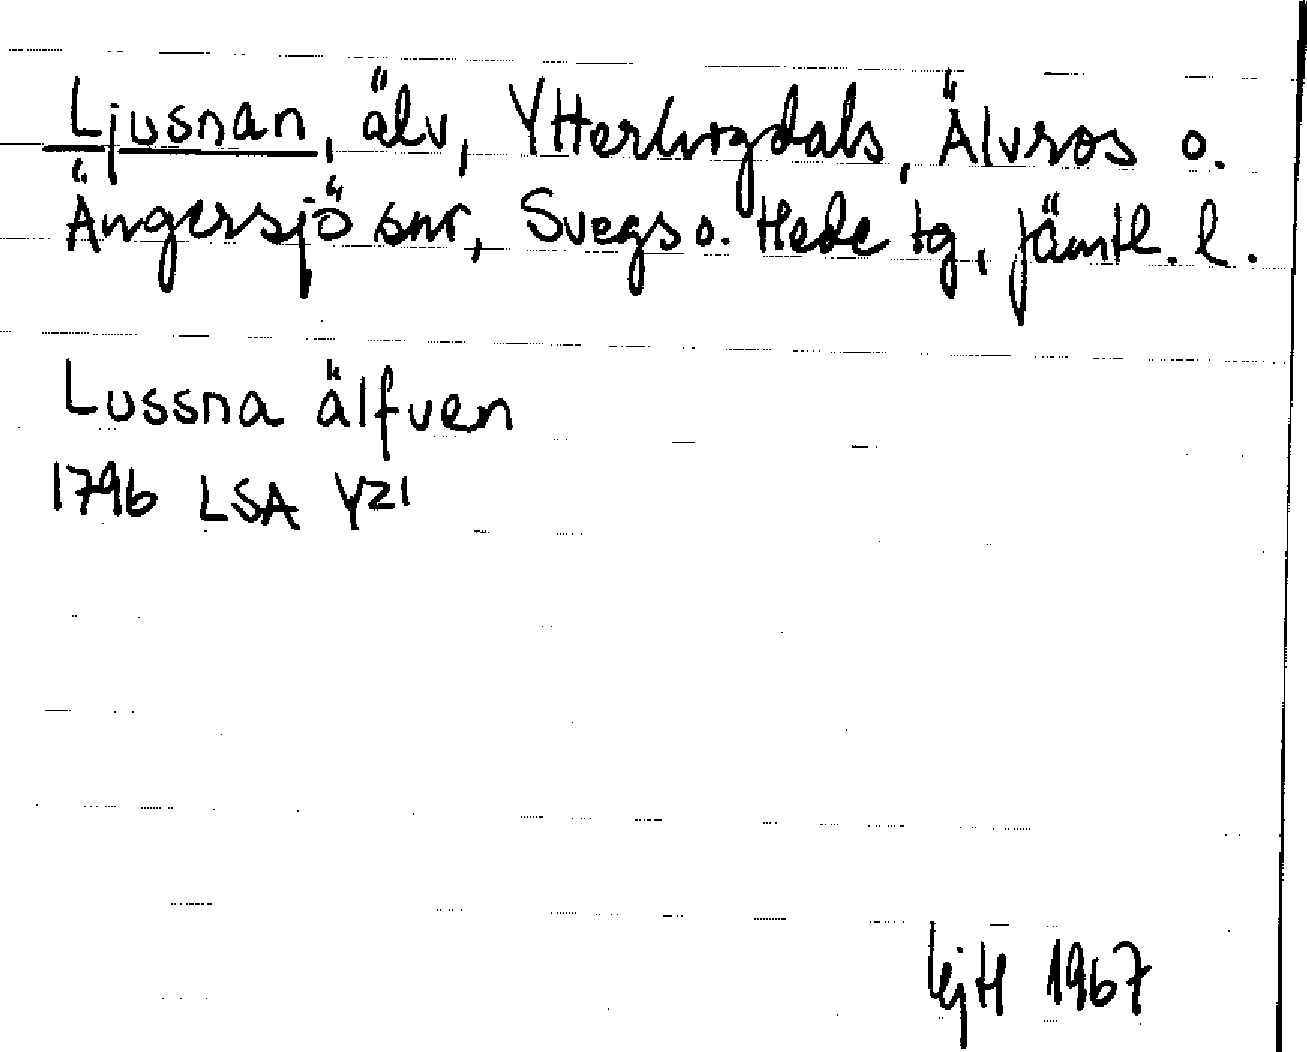 Ljusnan, älv, Ytterhogdals, Älvros o.
Ängersjö snr, Svegs o. Hede tg, Jämtl. l.
Lussna älfven
1796 LSA Y21
1967